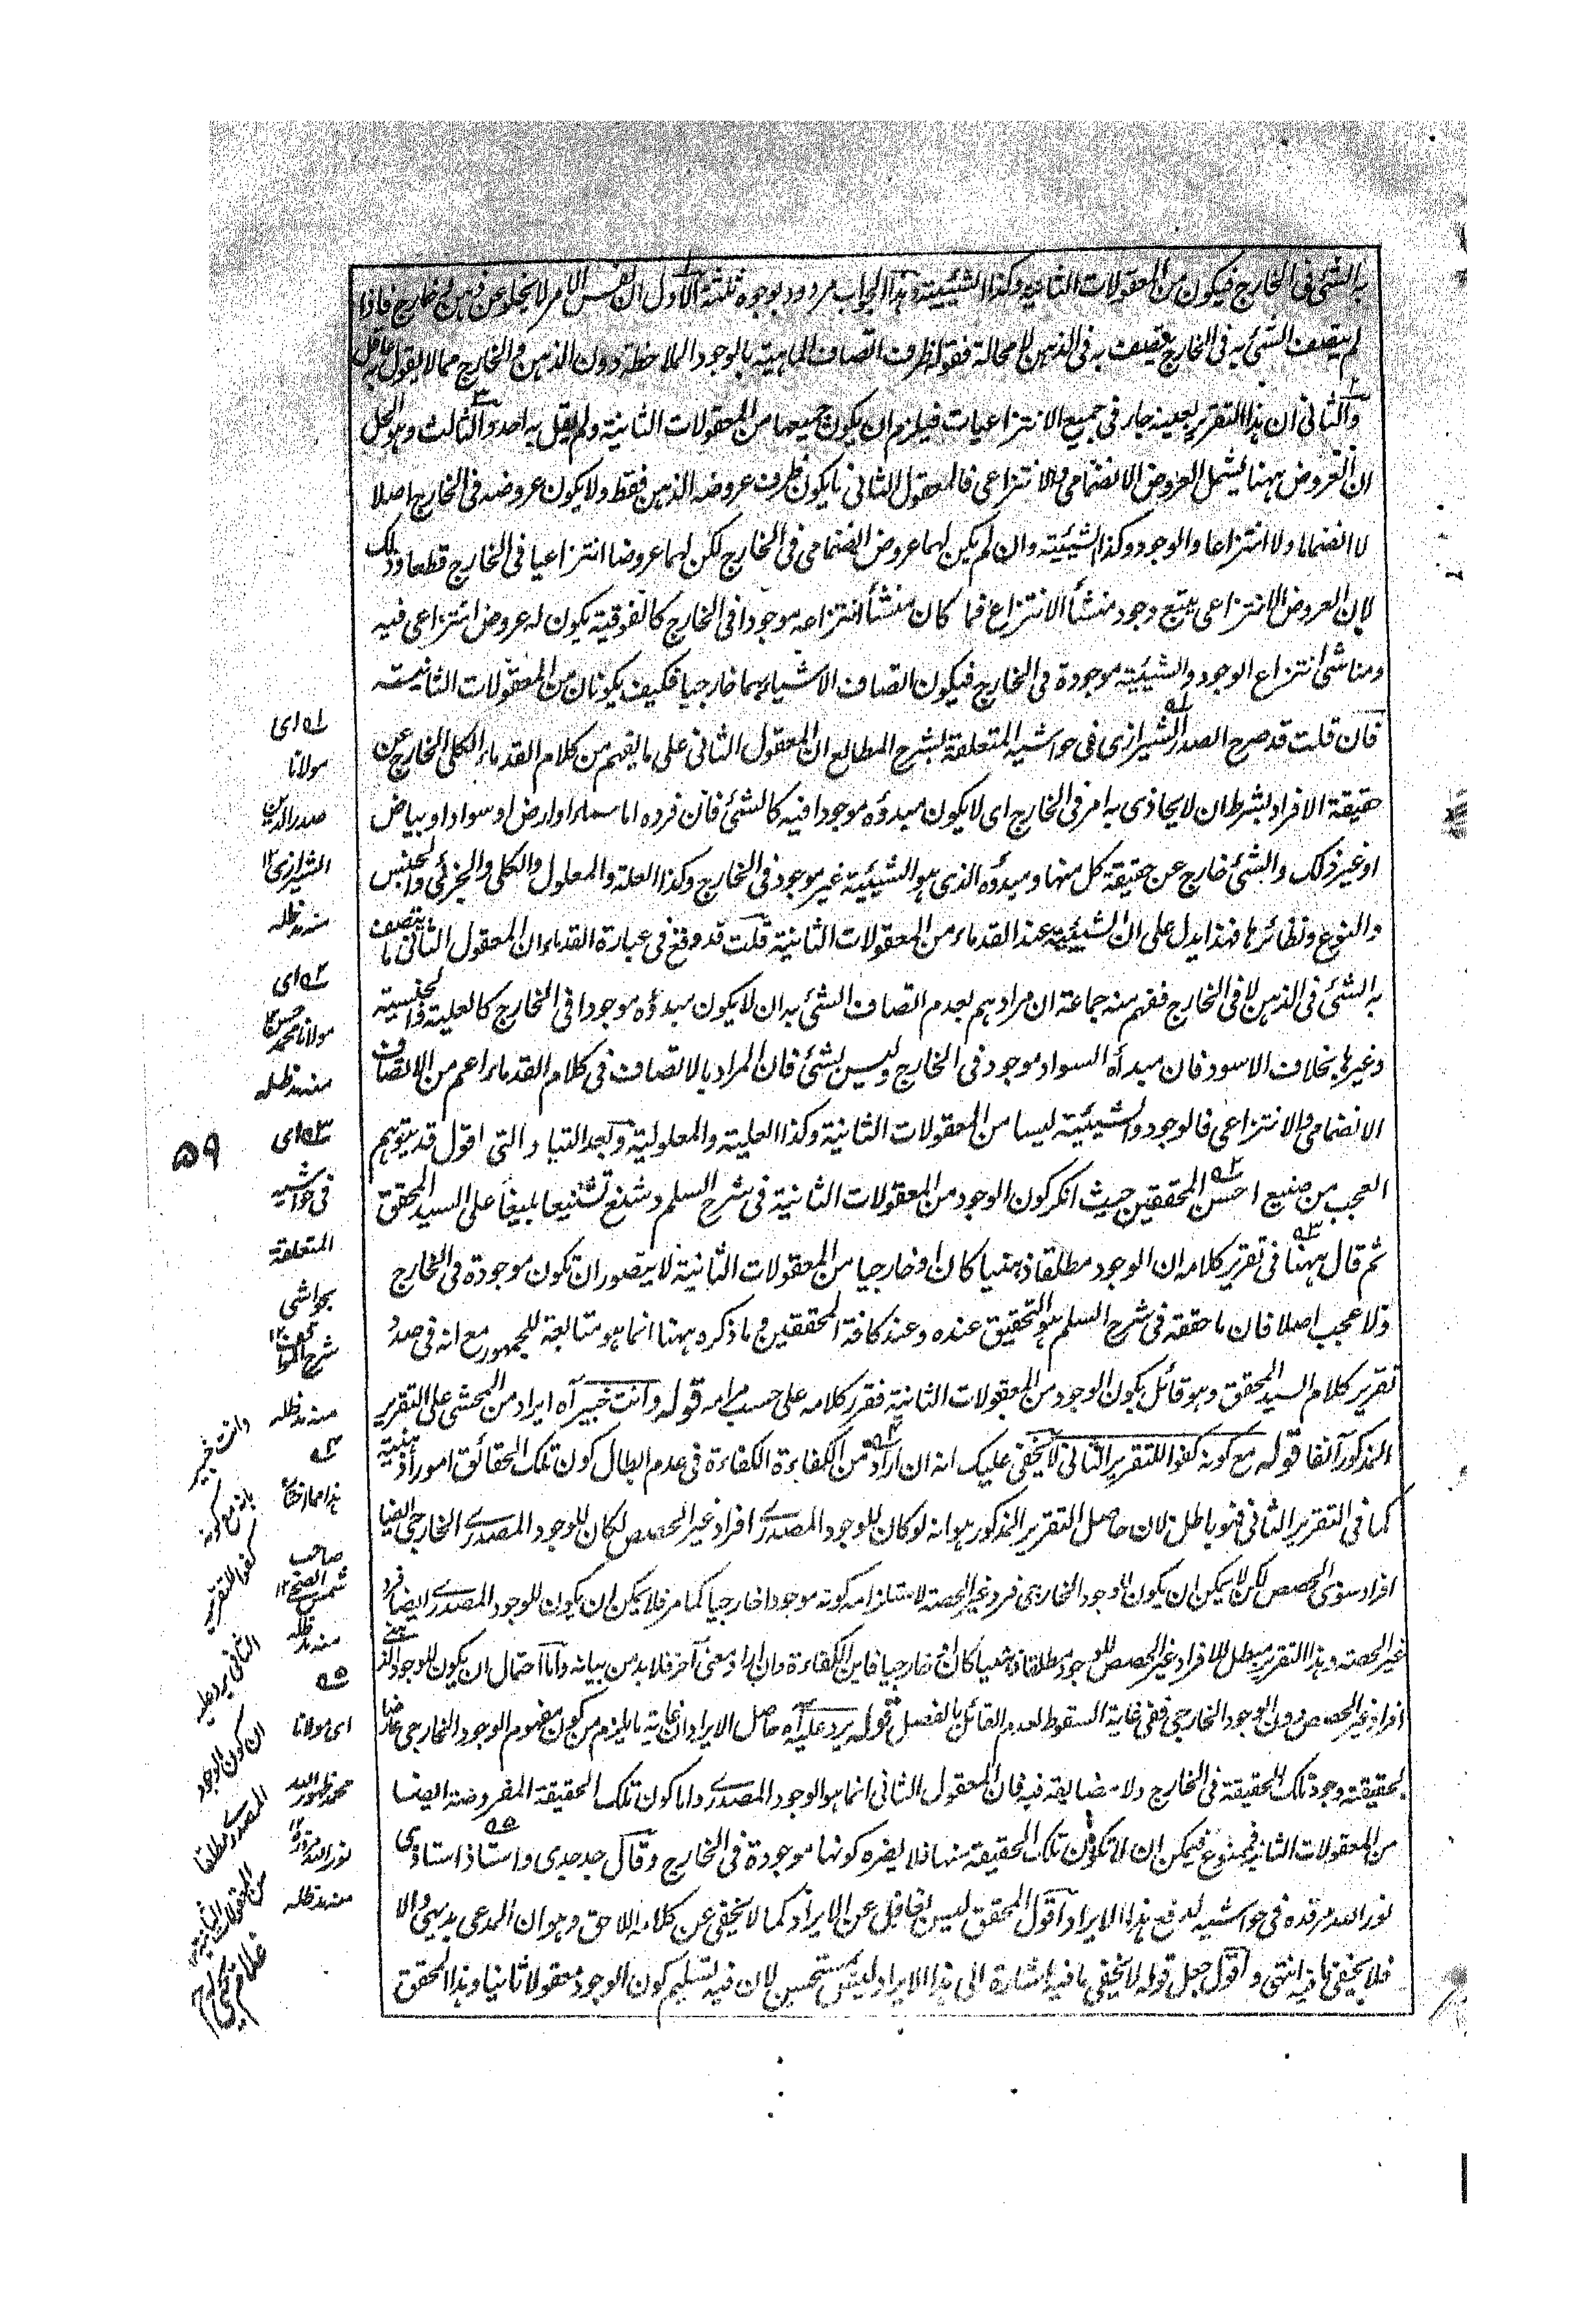 به الشئ فى الخارج فيكون من المعقولات الثانيه وكذا الشيئية وهذا الجواب مردود بوجوه ثلثة الاول ان نفس الامر لا يخلو عن ذهن او خارج فاذا
لم يتصف الشئ به فى الخارج فيتصف به فى الذهن لا محالة فقوله ظرف اتصاف الماهية بالوجود الملاحظة دون الذهن والخارج مما لا يقول به عاقل
والثانى ان هذا التقرير بعينه جار فى جميع الانتزاعيات فيلزم ان يكون جميعها من المعقولات الثانية ولم يقل به احد والثالث وهو الحل
ان العروض ههنا يشمل العروض الانضمامى والانتزاعى فالمعقول الثانى ما يكون ظرف عروضه الذهن فقط ولا يكون عروضه فى الخارج اصلا
لا انضماما ولا انتزاعا والوجود وكذا الشيئية وان لم يكن لهما عروض انضمامى فى الخارج لكن لهما عروضا انتزاعيا فى الخارج قطعا وذلك
لان العروض الانتزاعى يتبع وجود منشأ الانتزاع فما كان منشأ انتزاعه موجودا فى الخارج كالفوقية يكون له عروض انتزاعى فيه
ومناشى انتزاع الوجود والشيئية موجودة فى الخارج فيكون اتصاف الاشياء بهما خارجيا فكيف يكونان من المعقولات الثانية
فان قلت قد صرح الصدر الشيرازى فى حواشيه المتعلقة بشرح المطالع ان المعقول الثانى على ما يفهم من كلام القدماء الكلى الخارج عن
حقيقة الافراد بشرط ان لا يحاذى به امر فى الخارج اى لا يكون مبدؤه موجودا فيه كالشئ فان فرده اما سماء او ارض او سواد او بياض
او غير ذلك والشئ خارج عن حقيقة كل منها ومبدؤه الذى هو الشيئية غير موجود فى الخارج وكذا العلة والمعلول والكلى والجزئى والجنس
والنوع ونظائرها فهذا يدل على ان الشيئية عند القدماء من المعقولات الثانية قلت قد وقع فى عبارة القدماء ان المعقول الثانى ما يتصف
به الشئ فى الذهن لا فى الخارج ففهم منه جماعة ان مرادهم بعدم اتصاف الشئ به ان لا يكون مبدؤه موجودا فى الخارج كالعلية والجنسية
وغيرها بخلاف الاسود فان مبدأه السواد موجود فى الخارج وليس بشئ فان المراد بالاتصاف فى كلام القدماء اعم من الاتصاف
الانضمامى والانتزاعى فالوجود والشيئية ليسا من المعقولات الثانية وكذا العلية والمعلولية وبعد اللتيا والتى اقول قد يتوهم
العجب من صنيع احسن المحققين حيث انكر كون الوجود من المعقولات الثانية فى شرح السلم وشنع تشنيعا بليغا على السيد المحقق
ثم قال ههنا فى تقرير كلامه ان الوجود مطلقا ذهنيا كان او خارجيا من المعقولات الثانية لا يتصور ان تكون موجودة فى الخارج
ولا عجب اصلا فان ما حققه فى شرح السلم هو التحقيق عنده وعند كافة المحققين وما ذكره ههنا انما هو متابعة للجمهور مع انه فى صدد
تقرير كلام السيد المحقق وهو قائل بكون الوجود من المعقولات الثانية فقرر كلامه على حسب مرامه قوله وانت خبير آه ايراد من المحشى على التقرير
المذكور آنفا قوله مع كونه كفوا للتقرير الثانى لا يخفى عليك انه ان اراد من الكفاءة الكفاءة فى عدم ابطال كون تلك الحقائق امورا ذهنية
كما فى التقرير الثانى فهو باطل لان حاصل التقرير المذكور هو انه لو كان للوجود المصدرى افراد غير الحصص لكان للوجود المصدرى الخارجى ايضا
افراد سوى الحصص لكن لا يمكن ان يكون للوجود الخارجى فرد غير الحصة لاستلزامه كونه موجودا خارجيا كما مر فلا يمكن ان يكون للوجود المصدرى ايضا فرد
غير الحصة وهذا التقرير مبطل للافراد غير الحصص للوجود مطلقا ذهنيا كان او خارجيا فاين الكفاءة وان اراد معنى آخر فلا بد من بيانه واما احتمال ان يكون للوجود الذهنى
افراد غير الحصص دون الوجود الخارجى ففى غاية السقوط لعدم القائل بالفصل قوله يرد عليه آه حاصل الايراد ان غاية ما يلزم من كون مفهوم الوجود الخارجى عارضا
لحقيقة وجود تلك الحقيقة فى الخارج ولا مضايقة فيه فان المعقول الثانى انما هو الوجود المصدرى واما كون تلك الحقيقة المفروضة ايضا
من المعقولات الثانية فممنوع فيمكن ان لا تكون تلك الحقيقة منها فلا يضره كونها موجودة فى الخارج وقال جد جدى واستاذ استاذى
نور الله مرقده فى حواشيه لدفع هذا الايراد اقول المحقق ليس بغافل عن الايراد كما لا يخفى عن كلامه اللاحق وهو ان المدعى بديهى والا
فلا يخفى ما فيه انتهى واقول جعل قوله لا يخفى ما فيه اشارة الى هذا الايراد ليس بمستحسن لان فيه تسليم كون الوجود معقولا ثانيا وهذا المحقق
له اى
مولانا
صدر الدين
الشيرازى ١٢
منه مد ظله
٢ه اى
مولانا محمد حسن ١٢
منه مد ظله
٣ه اى
فى حواشيه
المتعلقة
بحواشى
شرح المواقف ١٢
منه مد ظله
٤ه
صاحب
شمس الضحى ١٢
منه مد ظله
٥ه
اى مولانا
محمد ظهور الله
نور الله مرقده ١٢
منه مد ظله
وانت خبير
بانه مع كونه
كفوا للتقرير
الثانى يرد عليه
ان كون الوجود
المصدرى مطلقا
من المعقولات الثانية ١٢
غلام يحيى
٥٩